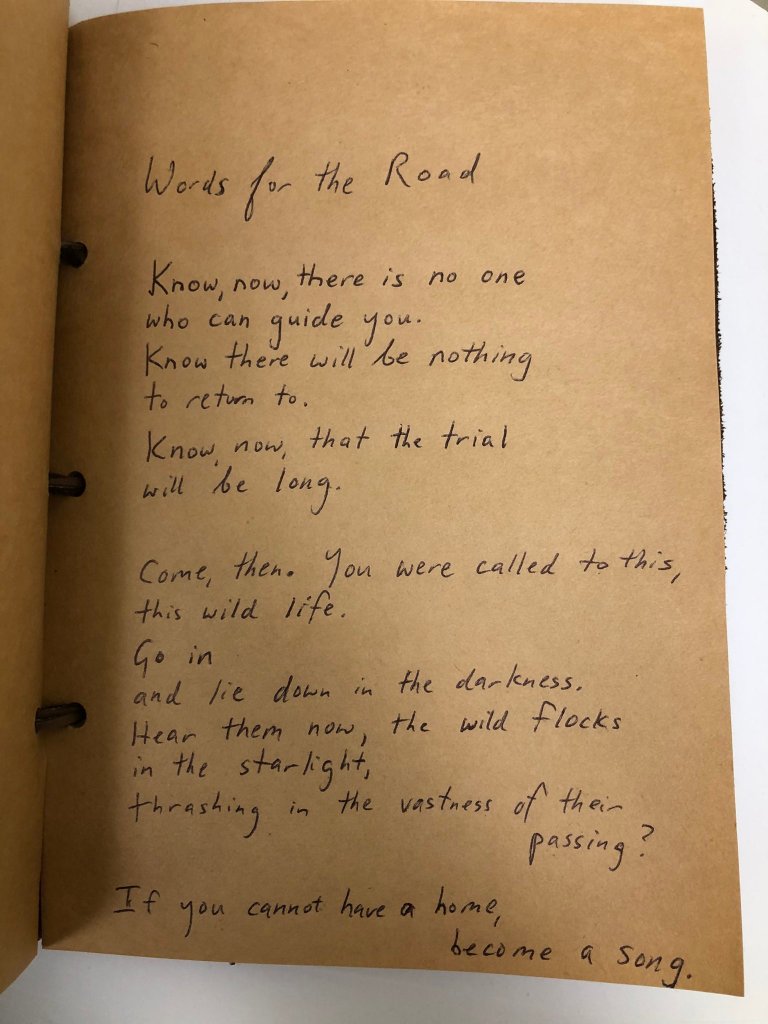 Words for the Road
Know, now, there is no one
who can guide you.
Know there will be nothing
to return to.
Know, now, that the trial
will be long.
Come, then. You were called to this,
this wild life.
Go in
and lie down in the darkness.
Hear them now, the wild flocks
in the starlight,
thrashing in the vastness of their
passing?
If you cannot have a home,
become a song.